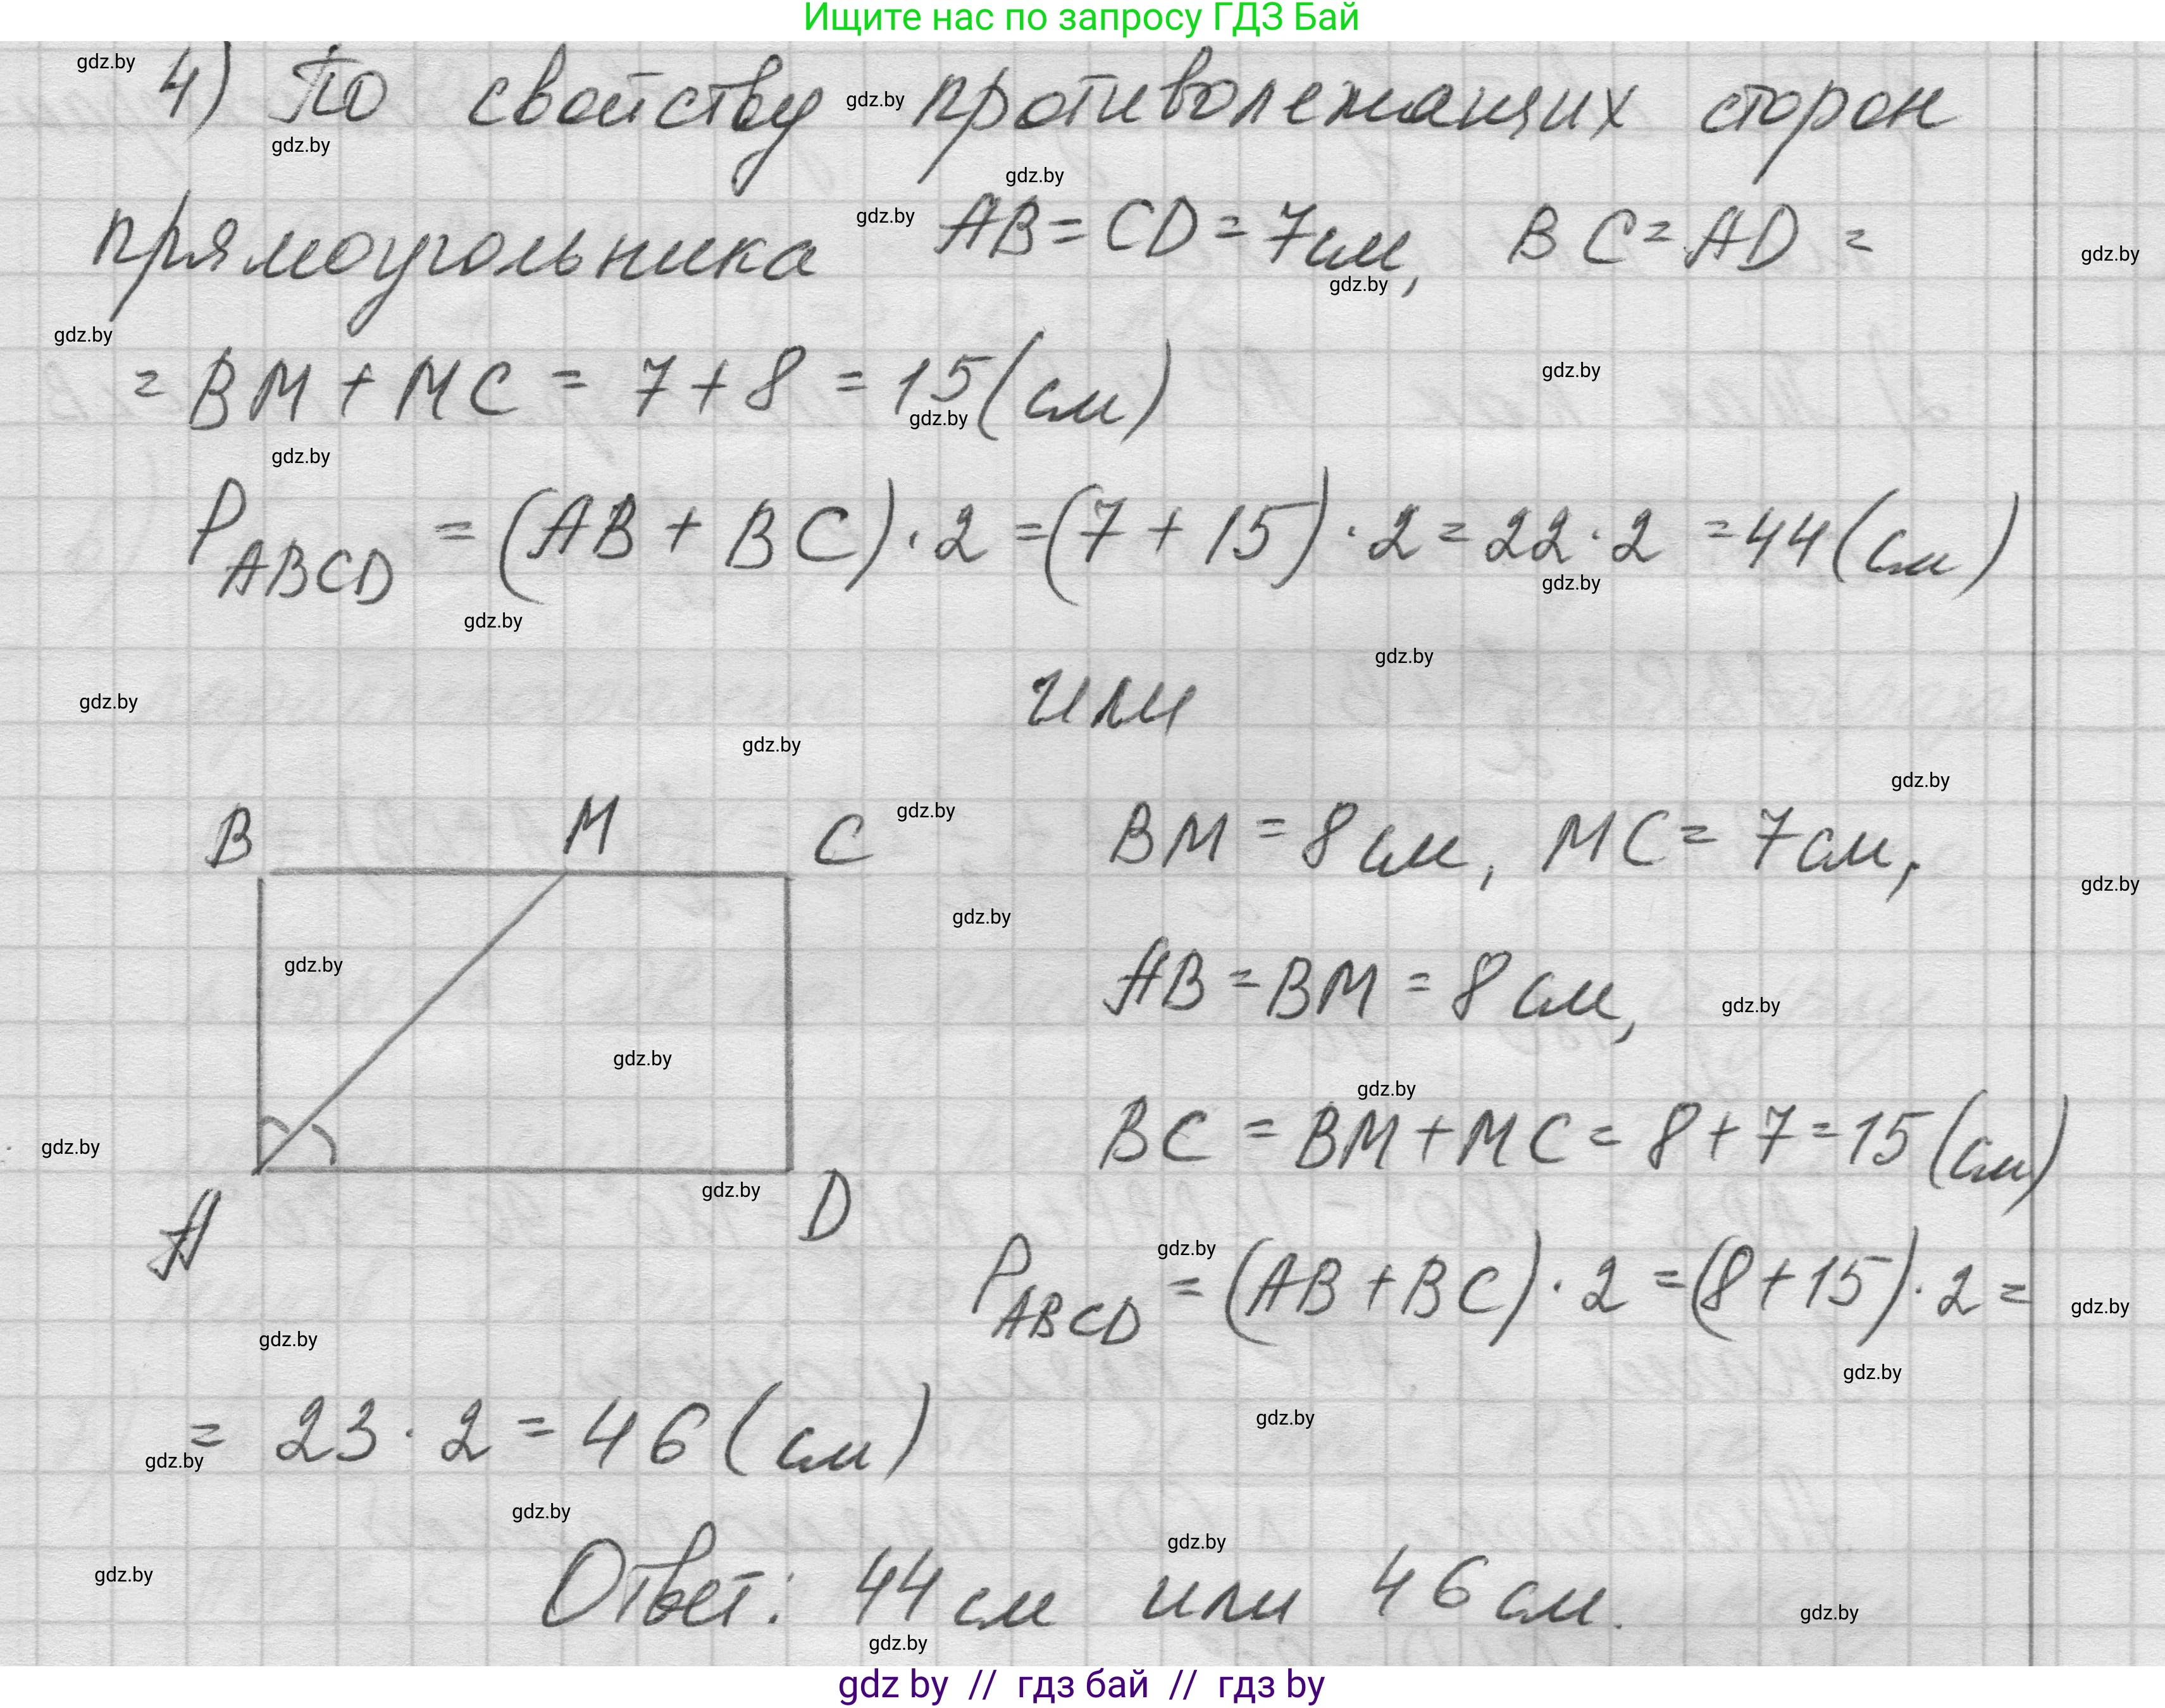 Ищите нас по запросу ГДЗ Бай
4) По свойству противолежащих сторон
прямоугольника AB = CD = 7см, BC = AD =
= BM + MC = 7 + 8 = 15(см)
P ABCD = (AB + BC) · 2 = (7 + 15) · 2 = 22 · 2 = 44 (см)
или
B M C
BM = 8 см, MC = 7 см,
AB = BM = 8 см,
BC = BM + MC = 8 + 7 = 15 (см)
A D
P ABCD = (AB + BC) · 2 = (8 + 15) · 2 =
= 23 · 2 = 46 (см)
Ответ: 44 см или 46 см.
gdz by // гдз бай // гдз by